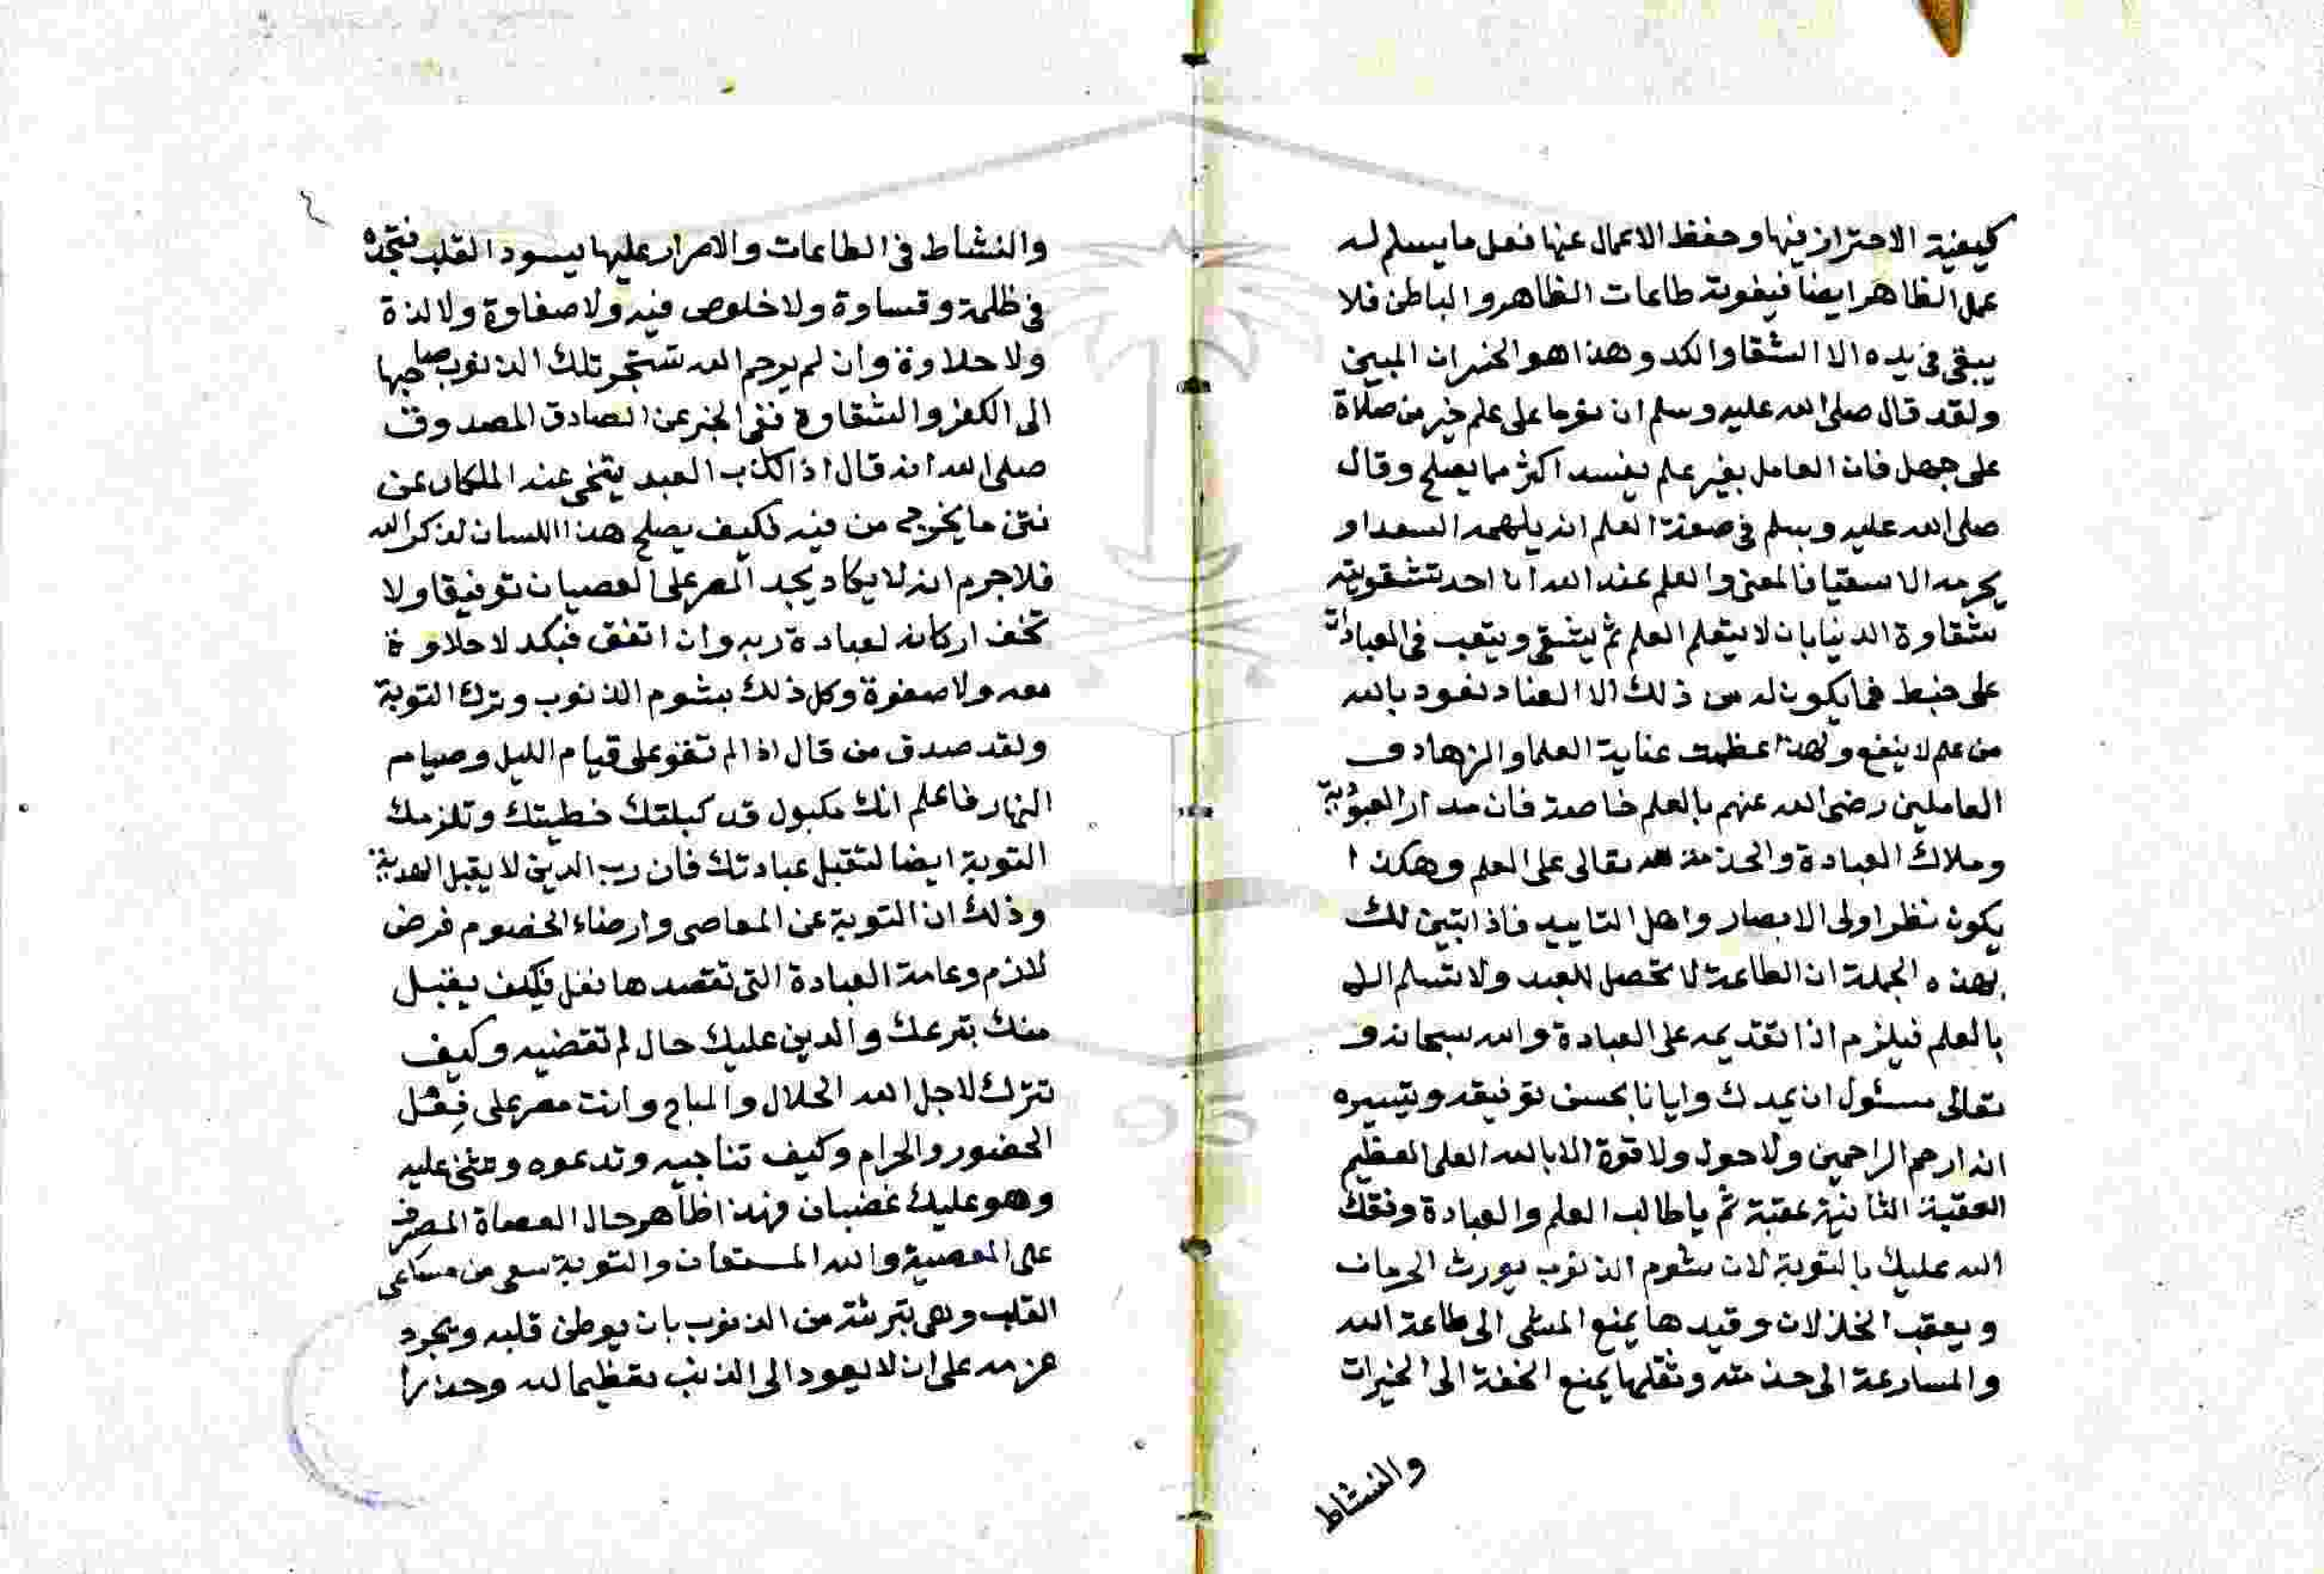 كيفية الاحتراز فيها وحفظ الاعمال عنها فعل ما يسلم له
عمل الظاهر ايضا فيفوته طاعات الظاهر والباطن فلا
يبقى فى يده الا الشقا والكد وهذا هو الخسران المبين
ولقد قال صلى الله عليه وسلم ان نوما على علم خير من صلاة
على جهل فان العامل بغير علم يفسد اكثر مما يصلح وقال
صلى الله عليه وسلم فى صفة العلم انه يلهمه السعدا و
يحرمه الاشقيا فالمعنى والعلم عند الله ان احد شقوتيه
شقاوة الدنيا بان لا يتعلم العلم ثم يشقى ويتعب فى العبادات
على خبط فما يكون له من ذلك الا العناد نعود بالله
من علم لا ينفع ولهذا عظمت عناية العلما والزهاد ف
العاملين رضى الله عنهم بالعلم خاصة فان مدار العبودية
وملاك العبادة والخدمة لله تعالى على العلم وهكذا
يكون نظر اولى الابصار واهل التاييد فاذا تبين لك
بهذه الجملة ان الطاعة لا تحصل للعبد ولا تسلم الا
بالعلم فيلزم اذا تقديمه على العبادة والله سبحانه و
تعالى مسئول ان يمدك وايانا بحسن توفيقه وتيسيره
انه ارحم الراحمين ولا حول ولا قوة الا بالله العلى العظيم
العقبة الثانية عقبة ثم يا طالب العلم والعبادة وفقك
الله عليك بالتوبة لان شوم الذنوب يورث الحرمان
ويعقب الخذلان وقيدها يمنع المشى الى طاعة الله
والمسارعة الى خدمته وثقلها يمنع الخفة الى الخيرات
والنشاط
والنشاط فى الطاعات والاصرار عليها يسود القلب فتجده
فى ظلمة وقساوة ولا خلوص فيه ولا صفاوة ولا لذة
ولا حلاوة وان لم يرحم الله ستجر تلك الذنوب صاحبها
الى الكفر والشقاوة ففى الخبر عن الصادق المصدوق
صلى الله انه قال اذا كذب العبد يتنحى عنه الملكان عن
نتن ما يخرج من فيه فكيف يصلح هذا اللسان لذكر الله
فلا جرم انه لا يكاد يجد المصر على العصيان توفيقا ولا
تخف اركانه لعبادة ربه وان اتفق فبكد لا حلاوة
معه ولا صفوة وكل ذلك بشوم الذنوب وترك التوبة
ولقد صدق من قال اذا لم تقو على قيام الليل وصيام
النهار فاعلم انك مكبول قد كبلتك خطيتك وتلزمك
التوبة ايضا لتقبل عبادتك فان رب الدين لا يقبل الهدية
وذلك ان التوبة عن المعاصى وارضاء الخصوم فرض
لازم وعامة العبادة التى تقصدها نفل فكيف يقبل
منك تبرعك والدين عليك حال لم تقضيه وكيف
تترك لاجل الله الحلال والمباح وانت مصر على فعل
الحضور والحرام وكيف تناجيه وتدعوه وتثنى عليه
وهو عليك غضبان فهذا ظاهر حال العصاة المصرفي
على المعصية والله المستعان والتوبة سعى من مساعى
القلب وهى تبرئة من الذنوب بان يوطن قلبه ويجرد
عزمه على ان لا يعود الى الذنب تعظيما لله وحذرا